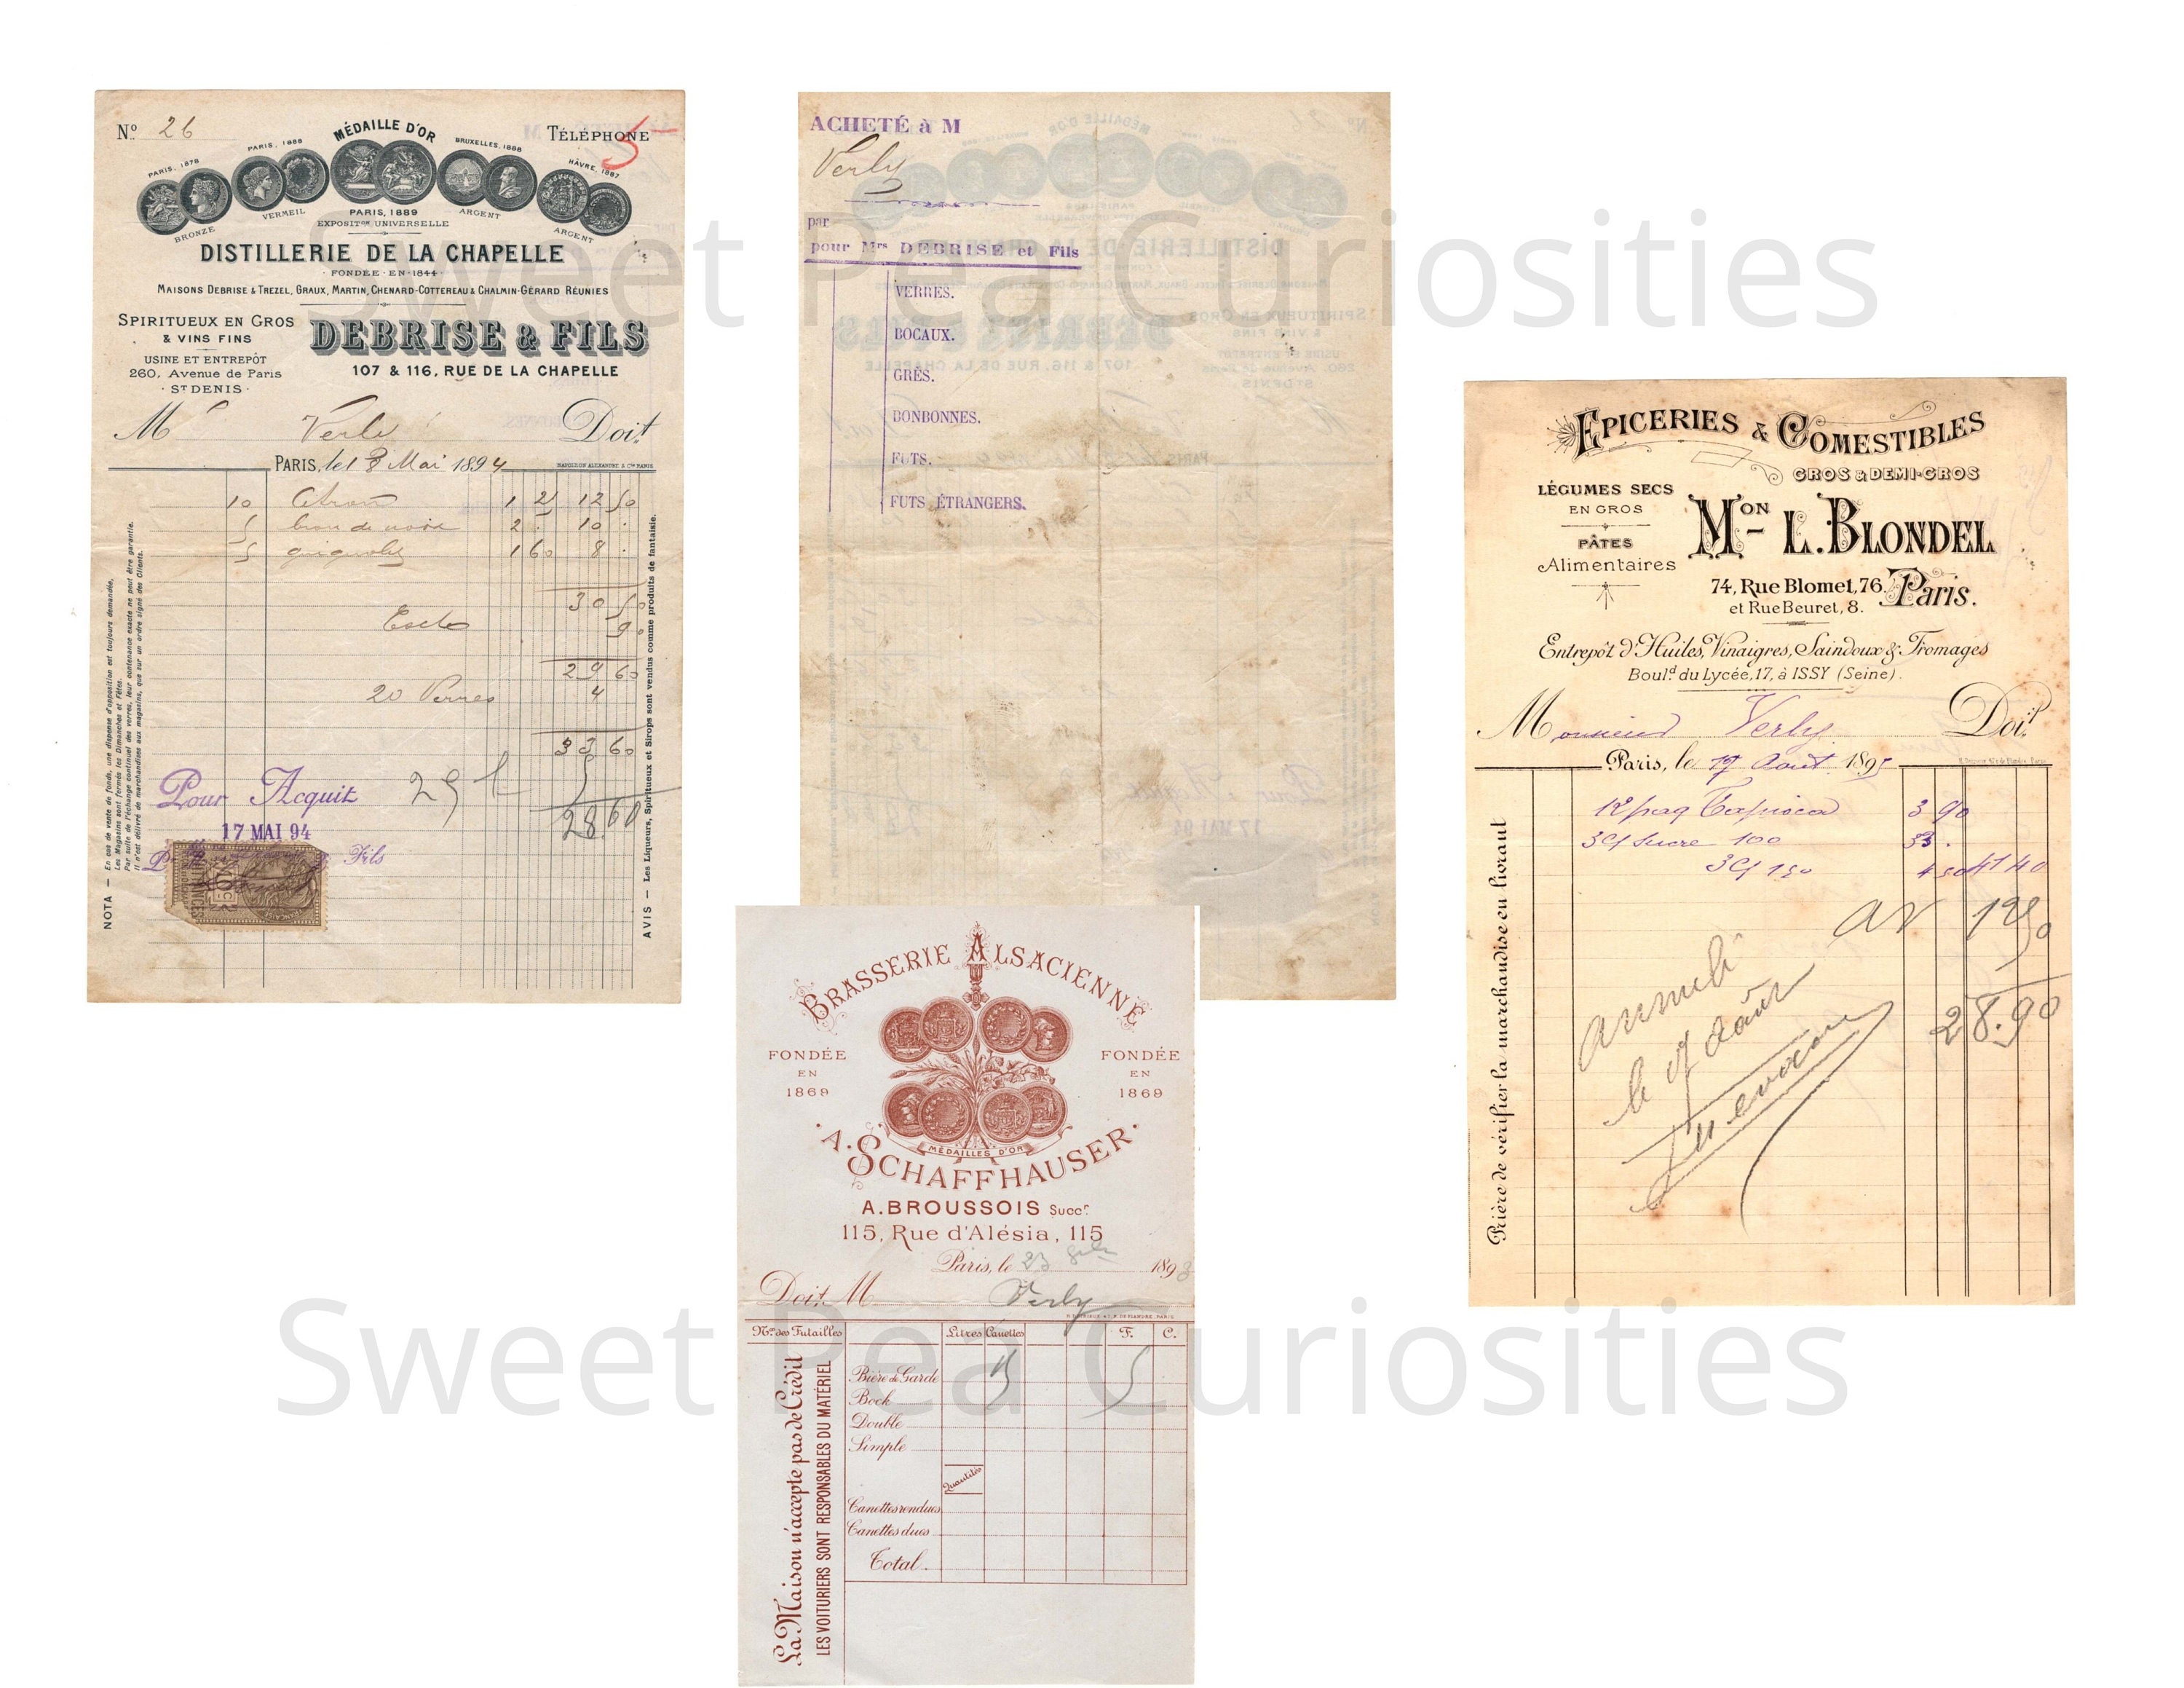 Nº 26
MÉDAILLE D'OR
TÉLÉPHONE
5
PARIS, 1878
PARIS, 1888
BRUXELLES, 1888
HÂVRE, 1887
BRONZE
VERMEIL
PARIS, 1889
ARGENT
ARGENT
EXPOSITON UNIVERSELLE
DISTILLERIE DE LA CHAPELLE
FONDÉE EN 1844
MAISONS DEBRISE & TREZEL, GRAUX, MARTIN, CHENARD-COTTEREAU & CHALMIN-GÉRARD RÉUNIES
SPIRITUEUX EN GROS
& VINS FINS
USINE ET ENTREPÔT
260, Avenue de Paris
ST DENIS
DEBRISE & FILS
107 & 116, RUE DE LA CHAPELLE
M Verly Doit
PARIS, le 18 Mai 1894
NAPOLÉON ALEXANDRE & Cie PARIS
10 Citron 1 25 12 50
5 brou de noix 2 . 10 .
5 guignolet 1 60 8 .
30 50
Escte 90
29 60
20 Verres 4
33 60
5
28.60
Pour Acquit
17 MAI 94
Fils
QUITTANCES
10
NOTA — En cas de vente de fonds, une dispense d'opposition est toujours demandée.
Les Magasins sont fermés les Dimanches et Fêtes.
Par suite de l'échange continuel des verres, leur contenance exacte ne peut être garantie.
Il n'est délivré de marchandises aux magasins, que sur un ordre signé des Clients.
AVIS — Les Liqueurs, Spiritueux et Sirops sont vendus comme produits de fantaisie.
ACHETÉ à M
Verly
par
pour Mrs DEBRISE et Fils
VERRES.
BOCAUX.
GRÈS.
BONBONNES.
FUTS.
FUTS ÉTRANGERS.
BRASSERIE ALSACIENNE
FONDÉE
EN
1869
FONDÉE
EN
1869
MÉDAILLES D'OR
A. SCHAFFHAUSER
A. BROUSSOIS Succr
115, Rue d'Alésia, 115
Paris, le 23 1893
Doit M Verly
Nos des Futailles
Litres Canettes F. C.
Bière de Garde 5
Bock
Double
Simple
Quantités
Canettes rendues
Canettes dues
Total
La Maison n'accepte pas de Crédit
LES VOITURIERS SONT RESPONSABLES DU MATÉRIEL
EPICERIES & COMESTIBLES
GROS & DEMI-GROS
LÉGUMES SECS
EN GROS
PÂTES
Alimentaires
MON L. BLONDEL
74, Rue Blomet, 76
et Rue Beuret, 8.
Paris.
Entrepôt d'Huiles, Vinaigres, Saindoux & Fromages
Bould du Lycée, 17, à ISSY (Seine).
Monsieur Verly Doit
Paris, le 17 Août 1895
12 paq Tapioca 3 90
Sucre 100 33 .
150 4 50 41 40
12 50
28.90
le 17 août
Prière de vérifier la marchandise en livrant
Sweet Pea Curiosities
Sweet Pea Curiosities